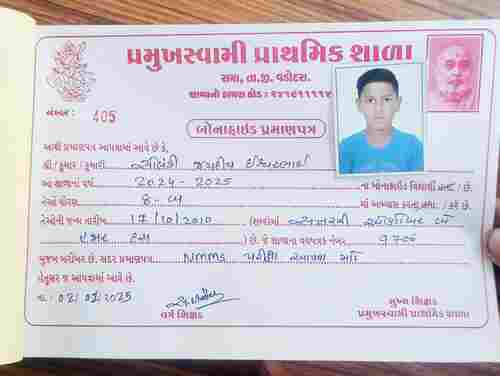 પ્રમુખસ્વામી પ્રાથમિક શાળા
સમા, તા.જી. વડોદરા.
શાળાનો ડાયસ કોડ :
નંબર : 405
બોનાફાઇડ પ્રમાણપત્ર
આથી પ્રમાણપત્ર આપવામાં આવે છે કે,
શ્રી / કુમાર / કુમારી જયદીપ ઈશ્વરભાઈ
આ શાળાનાં વર્ષ 2024 - 2025 ના બોનાફાઇડ વિદ્યાર્થી હતાં / છે.
તેઓ ધોરણ 8 - બ માં અભ્યાસ કરતા હતા / કરે છે.
તેઓની જન્મ તારીખ 17/10/2010 (શબ્દોમાં સત્તરમી ઓક્ટોબર બે
હજાર દસ ) છે. જે શાળાના વયપત્રક નંબર 9706
મુજબ બરોબર છે. સદર પ્રમાણપત્ર NMMS પરીક્ષા આપવા માટે
હેતુસર જ આપવામાં આવે છે.
તા. : 02/01/2025
વર્ગ શિક્ષક
મુખ્ય શિક્ષક
પ્રમુખસ્વામી પ્રાથમિક શાળા